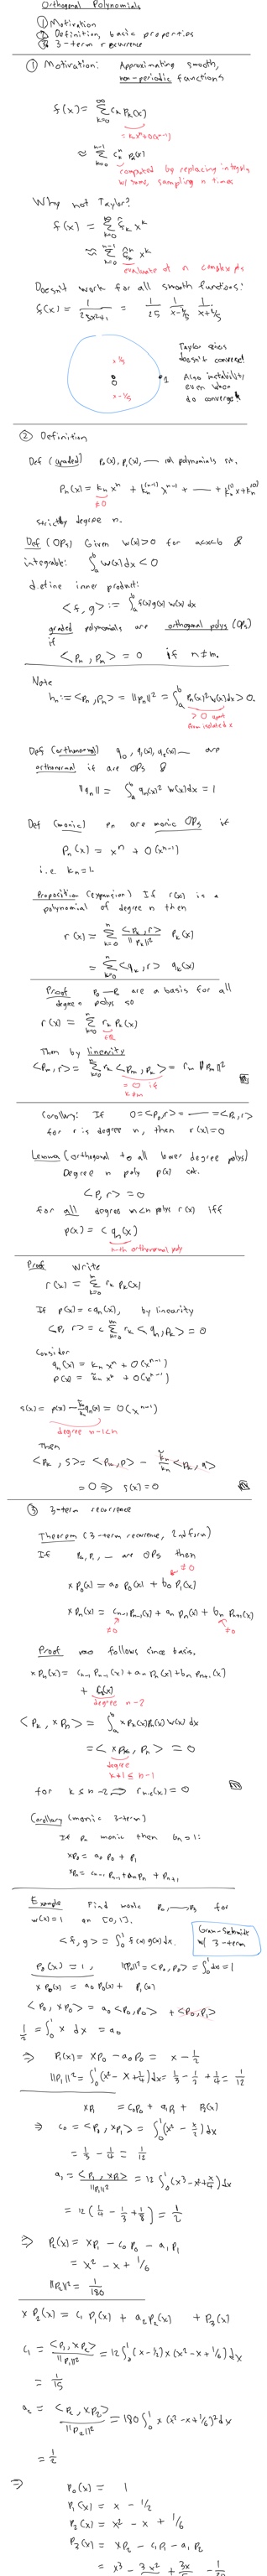 Orthogonal Polynomials
① Motivation
② Definition, basic properties
③ 3-term recurrence
① Motivation: Approximating smooth,
non-periodic functions
f(x) = ∑_{k=0}^{∞} c_k p_k(x)
= k_n x^n + O(x^{n-1})
≈ ∑_{k=0}^{n-1} c_k^n p_k(x)
computed by replacing integrals
w/ sums, sampling n times
Why not Taylor?
f(x) = ∑_{k=0}^{∞} f̂_k x^k
≈ ∑_{k=0}^{n-1} f̂_k^n x^k
evaluate at n complex pts
Doesn't work for all smooth functions:
f(x) = 1/(25x²+1) = 1/25 1/(x-i/5) 1/(x+i/5)
Taylor series
doesn't converge!
Also instability
even when
do converge
x i/5
0
1
x -i/5
② Definition
Def (graded) p₀(x), p₁(x), — are polynomials s.t.
p_n(x) = k_n x^n + k_n^{(n-1)} x^{n-1} + — + k_n^{(1)} x + k_n^{(0)}
≠0
strictly degree n.
Def (OPs) Given w(x)>0 for a<x<b &
integrable: ∫_a^b w(x)dx < ∞
define inner product:
<f, g> := ∫_a^b f(x)g(x) w(x)dx
graded polynomials are orthogonal polys (OPs)
if
<p_n, p_m> = 0 if n≠m.
Note
h_n := <p_n, p_n> = ||p_n||² = ∫_a^b p_n(x)² w(x)dx > 0.
> 0 apart
from isolated x
Def (orthonormal) q₀, q₁(x), q₂(x) — are
orthonormal if are OPs &
||q_n|| = ∫_a^b q_n(x)² w(x)dx = 1
Def (monic) p_n are monic OPs if
p_n(x) = x^n + O(x^{n-1})
i.e. k_n = 1.
Proposition (expansion) If r(x) is a
polynomial of degree n then
r(x) = ∑_{k=0}^{n} <p_k, r>/||p_k||² p_k(x)
= ∑_{k=0}^{n} <q_k, r> q_k(x)
Proof p₀ — p_n are a basis for all
degree n polys so
r(x) = ∑_{k=0}^{n} r_k p_k(x)
∈ℝ
Then by linearity
<p_m, r> = ∑_{k=0}^{n} r_k <p_m, p_k> = r_m ||p_m||²
= 0 if
k≠m
Corollary: If 0 = <p₀, r> = — = <p_n, r>
for r is degree n, then r(x) = 0
Lemma (orthogonal to all lower degree polys)
Degree n poly p(x) sat.
<p, r> = 0
for all degree m<n polys r(x) iff
p(x) = c q_n(x)
n-th orthonormal poly
Proof Write
r(x) = ∑_{k=0}^{m} r_k p_k(x)
If p(x) = c q_n(x), by linearity
<p, r> = c ∑_{k=0}^{m} r_k <q_n, p_k> = 0
Consider
q_n(x) = k_n x^n + O(x^{n-1})
p(x) = k̃_n x^n + O(x^{n-1})
s(x) = p(x) - k̃_n/k_n q_n(x) = O(x^{n-1})
degree n-1<n
Then
<p_k, s> = <p_k, p> - k̃_n/k_n <p_k, q_n>
= 0 ⇒ s(x) = 0
③ 3-term recurrence
Theorem (3-term recurrence, 2nd form)
If p₀, p₁, — are OPs then
≠0
x p₀(x) = a₀ p₀(x) + b₀ p₁(x)
x p_n(x) = c_{n-1} p_{n-1}(x) + a_n p_n(x) + b_n p_{n+1}(x)
≠0 ≠0
Proof n=0 follows since basis.
x p_n(x) = c_{n-1} p_{n-1}(x) + a_n p_n(x) + b_n p_{n+1}(x)
+ r_{n-2}(x)
degree n-2
<p_k, x p_n> = ∫_a^b x p_k(x) p_n(x) w(x)dx
= <x p_k, p_n> = 0
degree
k+1 ≤ n-1
for k ≤ n-2 ⇒ r_{n-2}(x) = 0
Corollary (monic 3-term)
If p_n monic then b_n = 1:
x p₀ = a₀ p₀ + p₁
x p_n = c_{n-1} p_{n-1} + a_n p_n + p_{n+1}
Example Find monic p₀, — p₃ for
w(x) = 1 on [0,1].
<f, g> = ∫_0^1 f(x) g(x) dx.
Gram-Schmidt
w/ 3-term
p₀(x) = 1, ||p₀||² = <p₀, p₀> = ∫_0^1 dx = 1
x p₀(x) = a₀ p₀(x) + p₁(x)
<p₀, x p₀> = a₀ <p₀, p₀> + <p₀, p₁>
1/2 = ∫_0^1 x dx = a₀
⇒ p₁(x) = x p₀ - a₀ p₀ = x - 1/2
||p₁||² = ∫_0^1 (x² - x + 1/4) dx = 1/3 - 1/2 + 1/4 = 1/12
x p₁ = c₀ p₀ + a₁ p₁ + p₂(x)
⇒ c₀ = <p₀, x p₁> = ∫_0^1 (x² - x/2) dx
= 1/3 - 1/4 = 1/12
a₁ = <p₁, x p₁>/||p₁||² = 12 ∫_0^1 (x³ - x² + x/4) dx
= 12 (1/4 - 1/3 + 1/8) = 1/2
⇒ p₂(x) = x p₁ - c₀ p₀ - a₁ p₁
= x² - x + 1/6
||p₂||² = 1/180
x p₂(x) = c₁ p₁(x) + a₂ p₂(x) + p₃(x)
c₁ = <p₁, x p₂>/||p₁||² = 12 ∫_0^1 (x - 1/2) x (x² - x + 1/6) dx
= 1/15
a₂ = <p₂, x p₂>/||p₂||² = 180 ∫_0^1 x (x² - x + 1/6)² dx
= 1/2
⇒ p₀(x) = 1
p₁(x) = x - 1/2
p₂(x) = x² - x + 1/6
p₃(x) = x p₂ - c₁ p₁ - a₂ p₂
= x³ - 3x²/2 + 3x/5 - 1/20